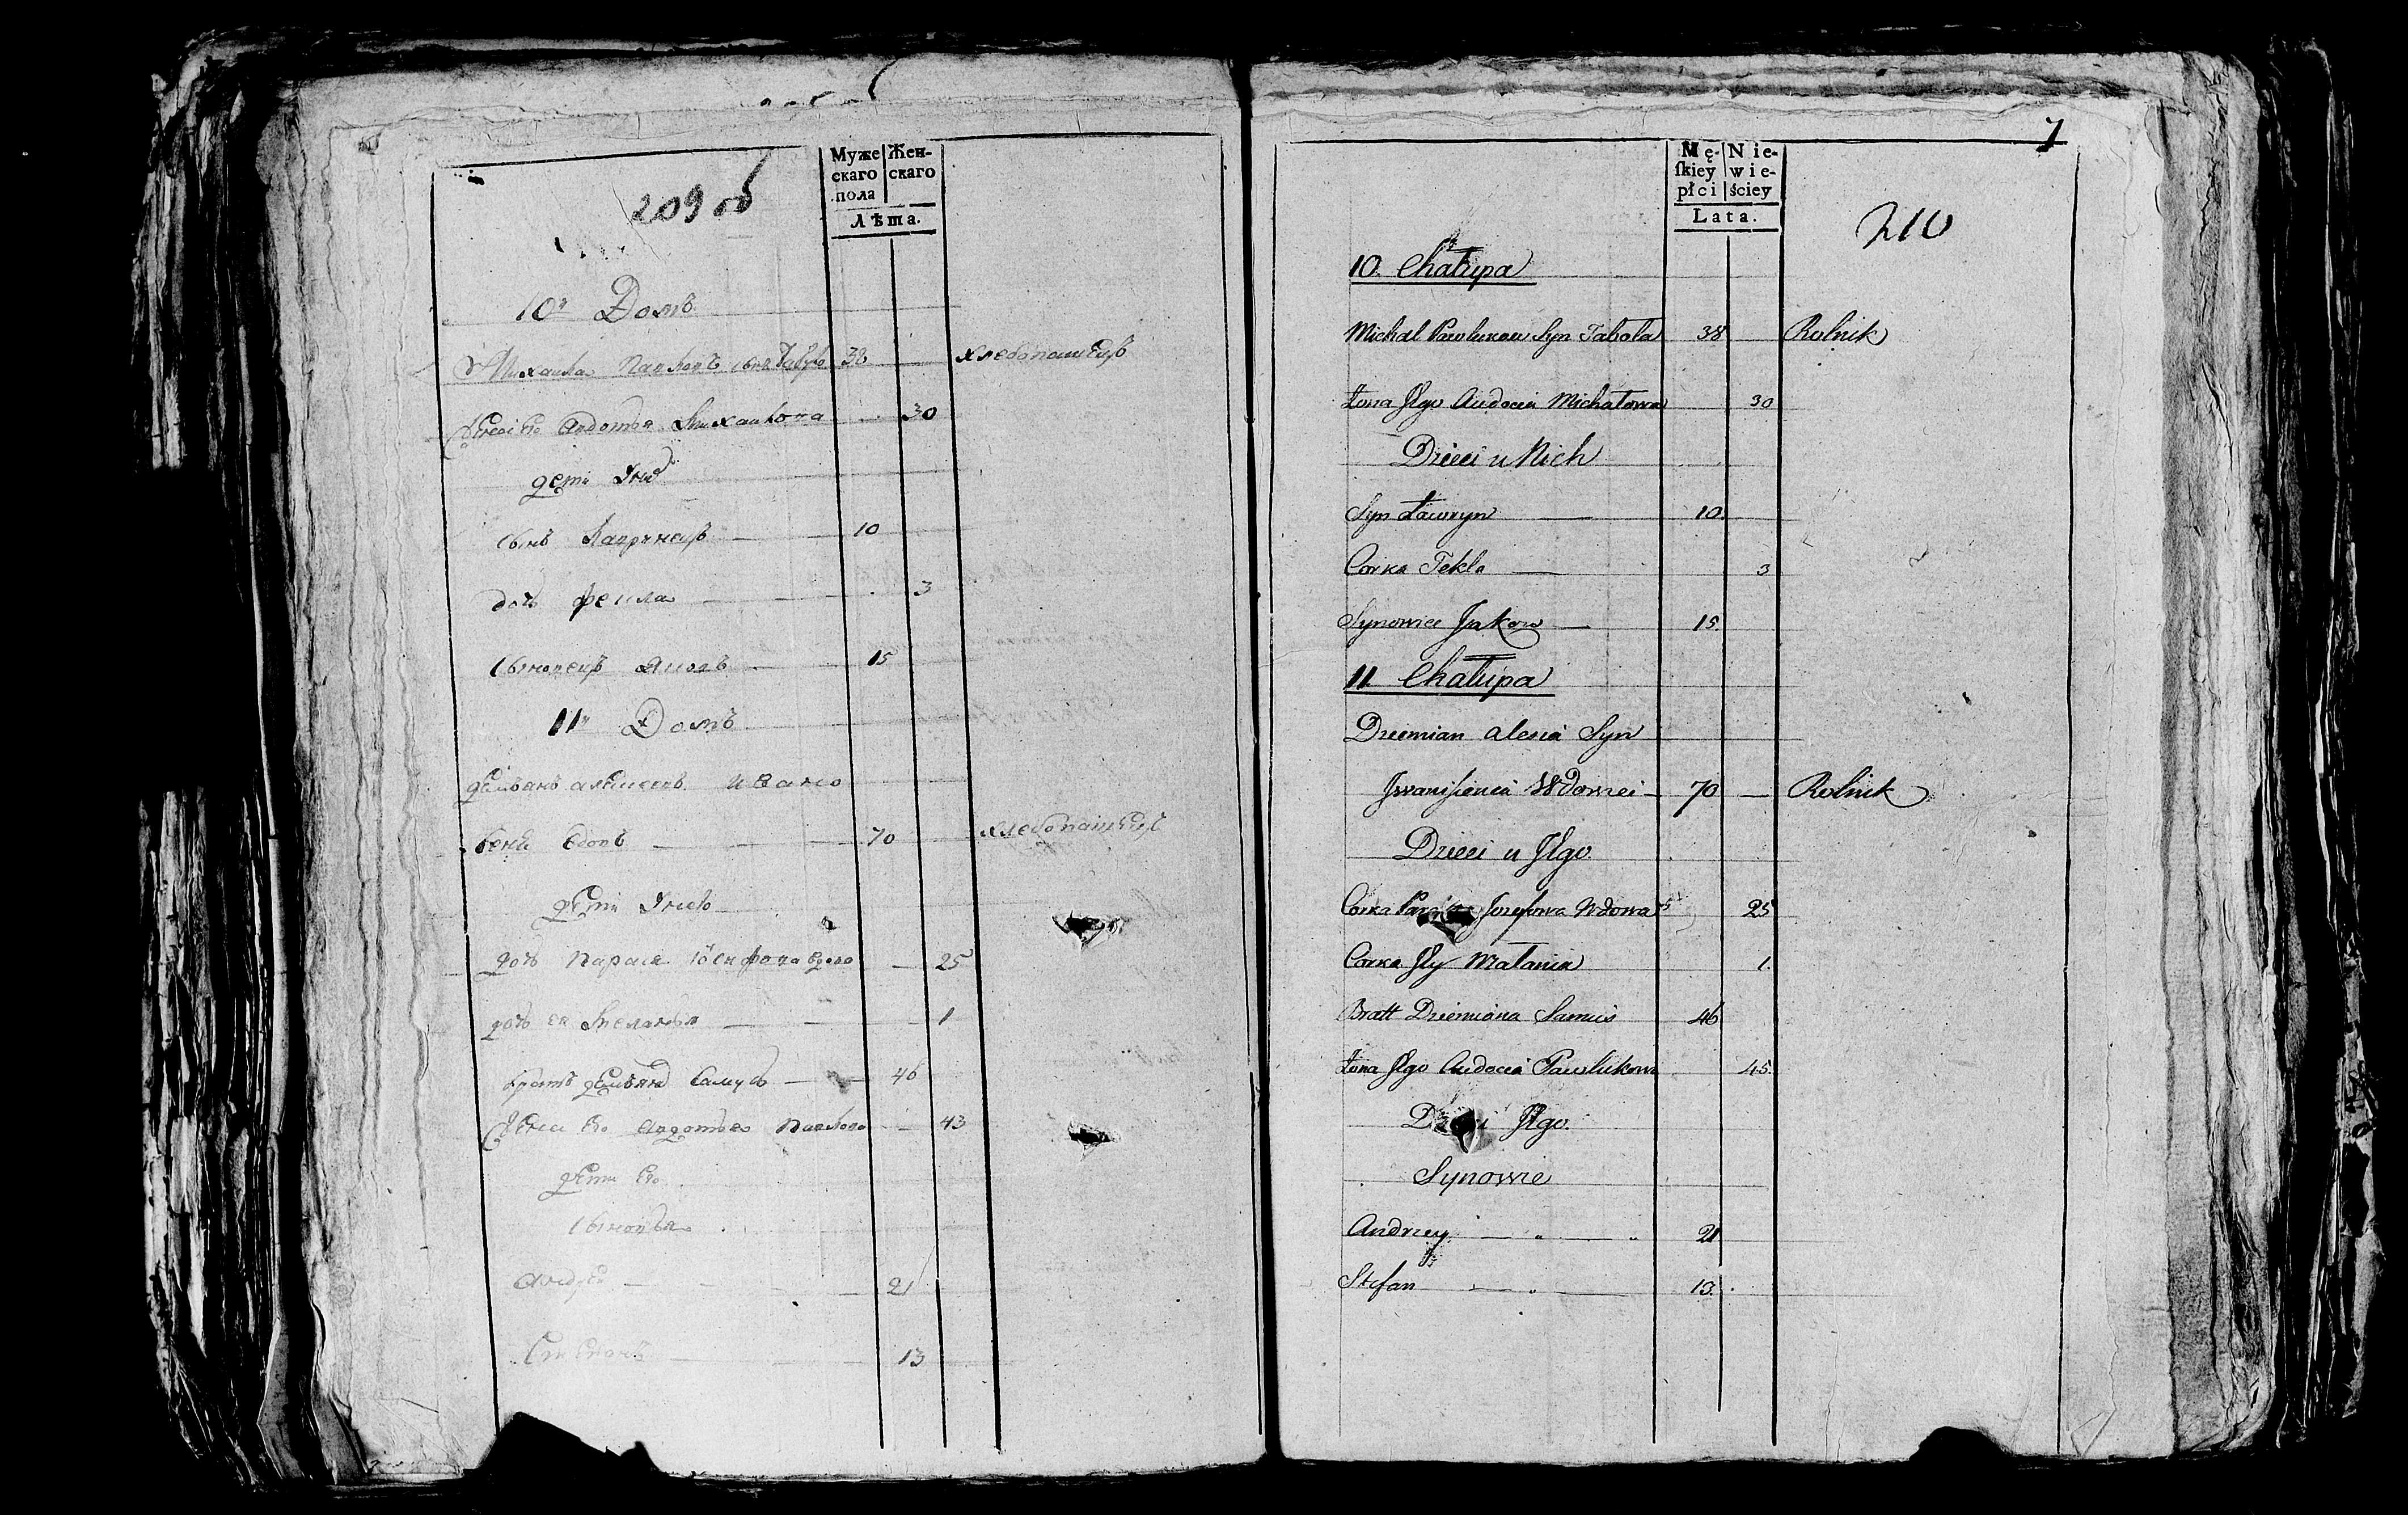 209 об
Муже Жен-
скаго скаго
пола
Лѣта.
10й Домъ
Михаила Павловъ сынъ 38 хлебопашецъ
Жена Его Авдотья Михайлова 30
дети Ихъ
сынъ Лавринецъ 10
дочь Фекла 3
сыновецъ Яковъ 15
11й Домъ
Демьянъ Алексеевъ Ивани
сеня вдовъ 70 хлебопашецъ
дети Ихъ
дочь Парася Іосифова вдова 25
дочь ея Меланья 1
братъ Демьяна Самусь 46
Жена Его Авдотья Павлова 43
дети Его
сыновья
Андрей 21
Степанъ 13
7
Mę- Nie-
ſkiey wie-
płci ściey
Lata.
210
10. Chałupa
Michał Pawlukow Syn Tabola 38 Rolnik
Żona Jego Audocia Michałowa 30
Dzieci u Nich
Syn Ławryn 10.
Corka Tekla 3
Synowiec Jakow 15.
11 Chałupa
Dziemian Alexia Syn
Iwanisienia Wdowiei 70 Rolnik
Dzieci u Jego
Corka Jozefowa Wdowa 25
Corka Jey Małania 1.
Bratt Dziemiana Samuś 46
Żona Jego Audocia Pawlukowa 45.
Dzieci Jego.
Synowie
Andrzey 21
Stefan 13.